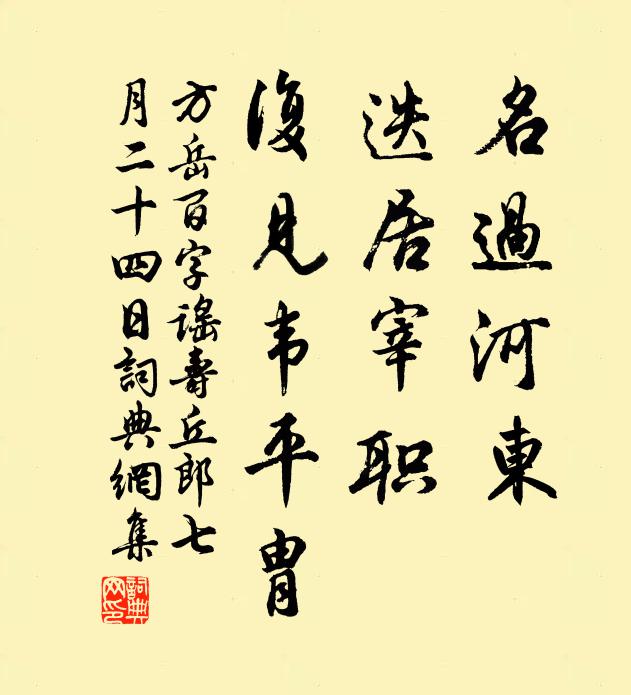 名過河東
迭居宰职
復見韦平胄
方岳百字謠壽丘郎七
月二十四日詞典網集
詞典網印